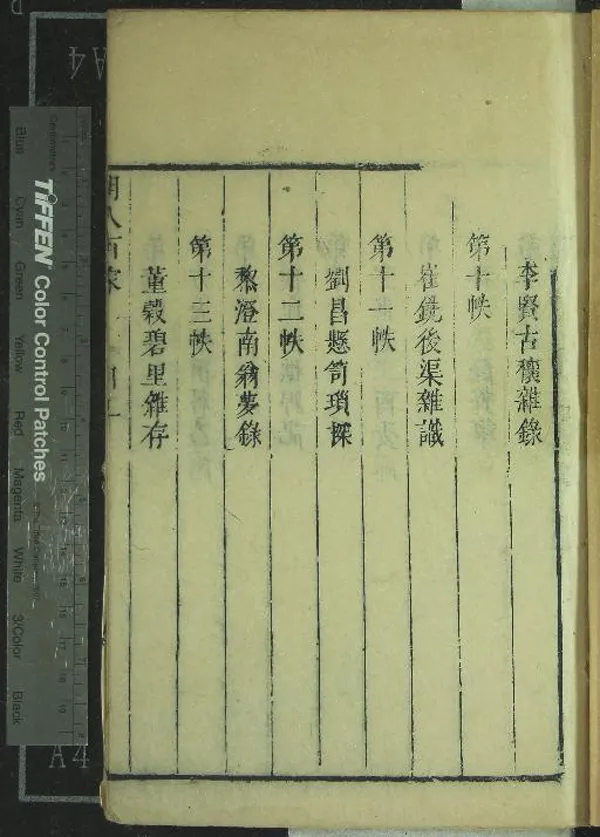 李賢古穰雜錄
第十帙
崔銑後渠雜識
第十一帙
劉昌懸笥瑣探
第十二帙
黎澄南翁夢錄
第十三帙
董穀碧里雜存
TIFFEN Color Control Patches
Blue
Cyan
Green
Yellow
Red
Magenta
White
3/Color
Black
A4
A4